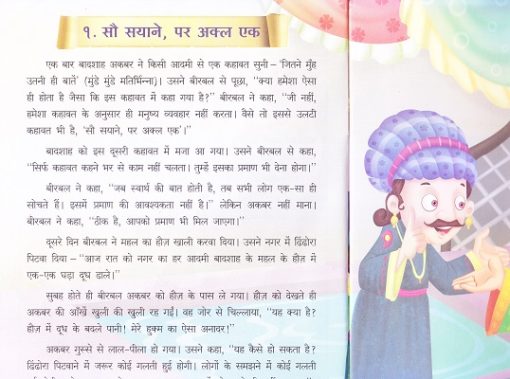 १. सौ सयाने, पर अक्ल एक
एक बार बादशाह अकबर ने किसी आदमी से एक कहावत सुनी – ‘जितने मुँह
उतनी ही बातें’ (मुंडे मुंडे मतिर्भिन्ना)। उसने बीरबल से पूछा, “क्या हमेशा ऐसा
ही होता है जैसा कि इस कहावत में कहा गया है?” बीरबल ने कहा, “जी नहीं,
हमेशा कहावत के अनुसार ही मनुष्य व्यवहार नहीं करता। वैसे तो इससे उलटी
कहावत भी है, ‘सौ सयाने, पर अक्ल एक’।”
बादशाह को इस दूसरी कहावत में मजा आ गया। उसने बीरबल से कहा,
“सिर्फ कहावत कहने भर से काम नहीं चलता। तुम्हें इसका प्रमाण भी देना होगा।”
बीरबल ने कहा, “जब स्वार्थ की बात होती है, तब सभी लोग एक-सा ही
सोचते हैं। इसमें प्रमाण की आवश्यकता नहीं है।” लेकिन अकबर नहीं माना।
बीरबल ने कहा, “ठीक है, आपको प्रमाण भी मिल जाएगा।”
दूसरे दिन बीरबल ने महल का हौज़ खाली करवा दिया। उसने नगर में ढिंढोरा
पिटवा दिया – “आज रात को नगर का हर आदमी बादशाह के महल के हौज़ में
एक-एक घड़ा दूध डाले।”
सुबह होते ही बीरबल अकबर को हौज़ के पास ले गया। हौज़ को देखते ही
अकबर की आँखें खुली की खुली रह गईं। वह जोर से चिल्लाया, “यह क्या है?
हौज़ में दूध के बदले पानी! मेरे हुक्म का ऐसा अनादर!”
अकबर गुस्से से लाल-पीला हो गया। उसने कहा, “यह कैसे हो सकता है?
ढिंढोरा पिटवाने में जरूर कोई गलती हुई होगी। लोगों के समझने में कोई गलती